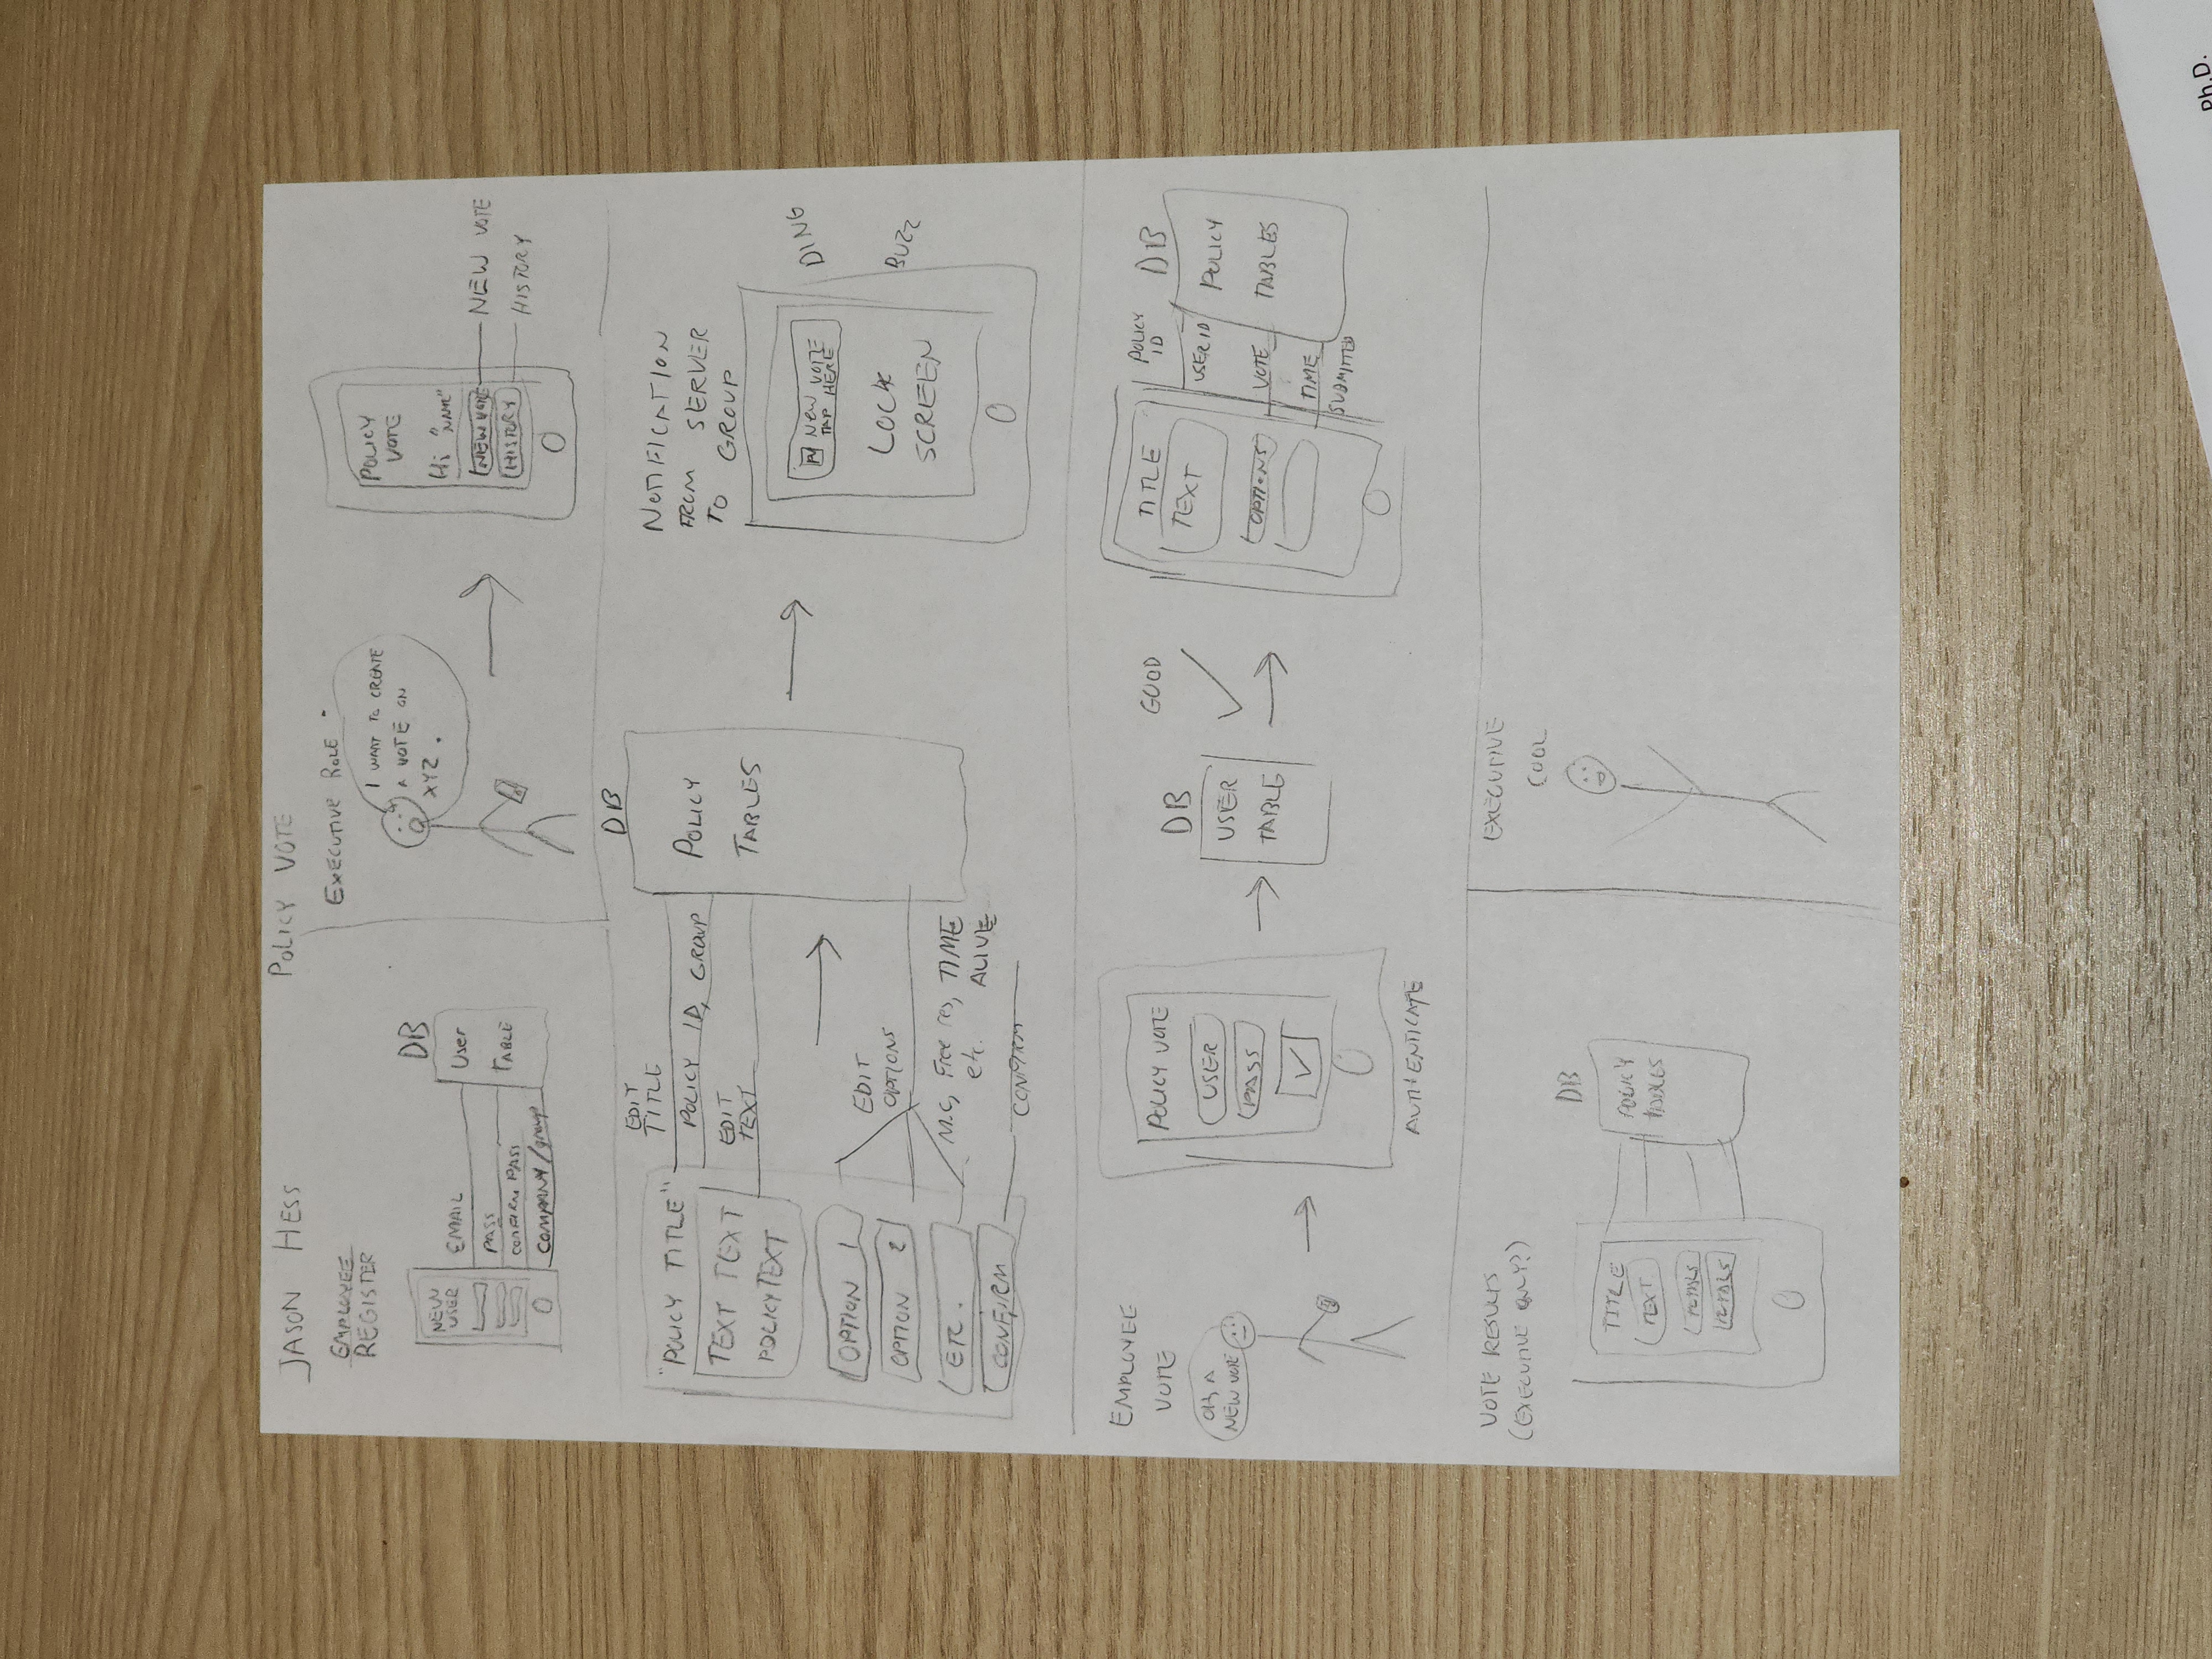 JASON HESS
POLICY VOTE
EMPLOYEE
REGISTER
NEW
USER
EMAIL
PASS
CONFIRM PASS
COMPANY/group
DB
User
TABLE
EXECUTIVE ROLE
I WANT TO CREATE
A VOTE ON
XYZ.
POLICY
VOTE
Hi "NAME"
NEW VOTE
HISTORY
NEW VOTE
HISTORY
"POLICY TITLE"
TEXT TEXT
POLICY TEXT
OPTION 1
OPTION 2
ETC.
CONFIRM
EDIT
TITLE
POLICY ID, GROUP
EDIT
TEXT
EDIT
OPTIONS
M.C, Free res, TIME
etc. ALIVE
CONFIRM
DB
POLICY
TABLES
NOTIFICATION
FROM SERVER
TO GROUP
PV NEW VOTE
TAP HERE
LOCK
SCREEN
DING
BUZZ
EMPLOYEE
VOTE
OH, A
NEW VOTE
POLICY VOTE
USER
PASS
AUTHENTICATE
DB
USER
TABLE
GOOD
TITLE
TEXT
OPTIONS
POLICY
ID
USER ID
VOTE
TIME
SUBMITTED
DB
POLICY
TABLES
VOTE RESULTS
(EXECUTIVE ONLY?)
TITLE
TEXT
TOTALS
TOTALS
DB
POLICY
TABLES
EXECUTIVE
COOL
Ph.D.